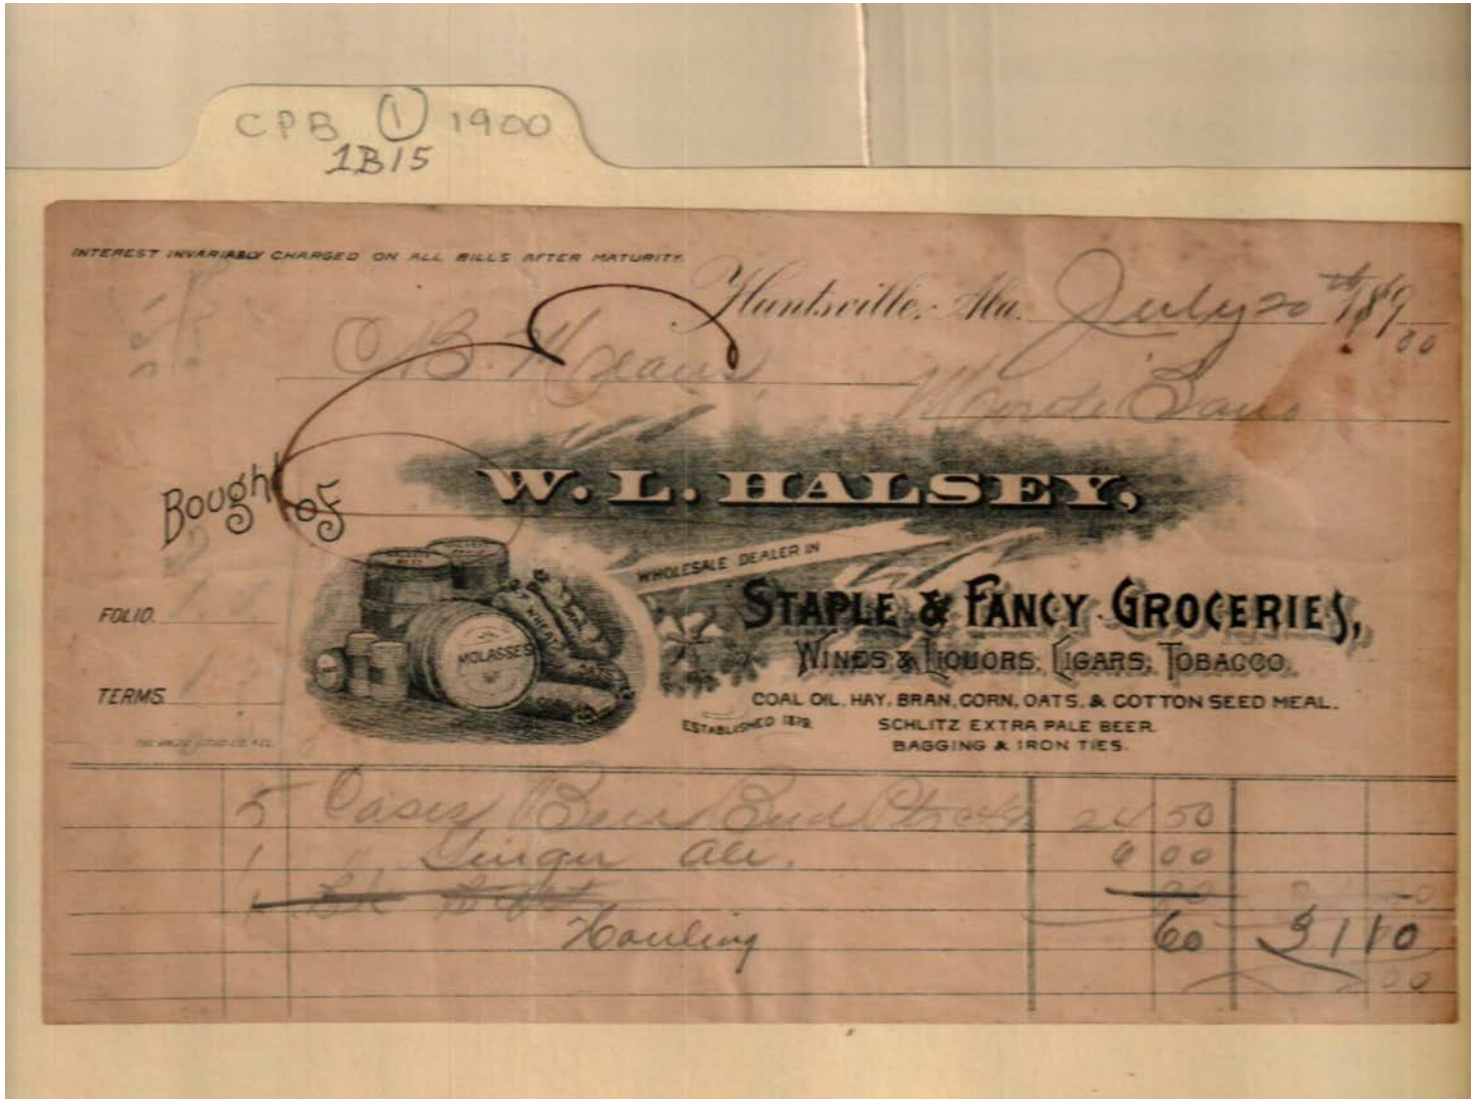 CPB 1 1900
1B15
INTEREST INVARIABLY CHARGED ON ALL BILLS AFTER MATURITY.
Huntsville, Ala. July 20th 189
00
C B.
Monte Sano
Bought of
W. L. HALSEY,
WHOLESALE DEALER IN
STAPLE & FANCY GROCERIES,
WINES & LIQUORS, CIGARS, TOBACCO,
COAL OIL, HAY, BRAN, CORN, OATS, & COTTON SEED MEAL.
ESTABLISHED 1879.
SCHLITZ EXTRA PALE BEER.
BAGGING & IRON TIES.
WHEAT
MOLASSES
FOLIO.
TERMS.
5 Cases Beer Bud 24 50
1 " Ginger Ale. 6 00
Hauling 60 31 10